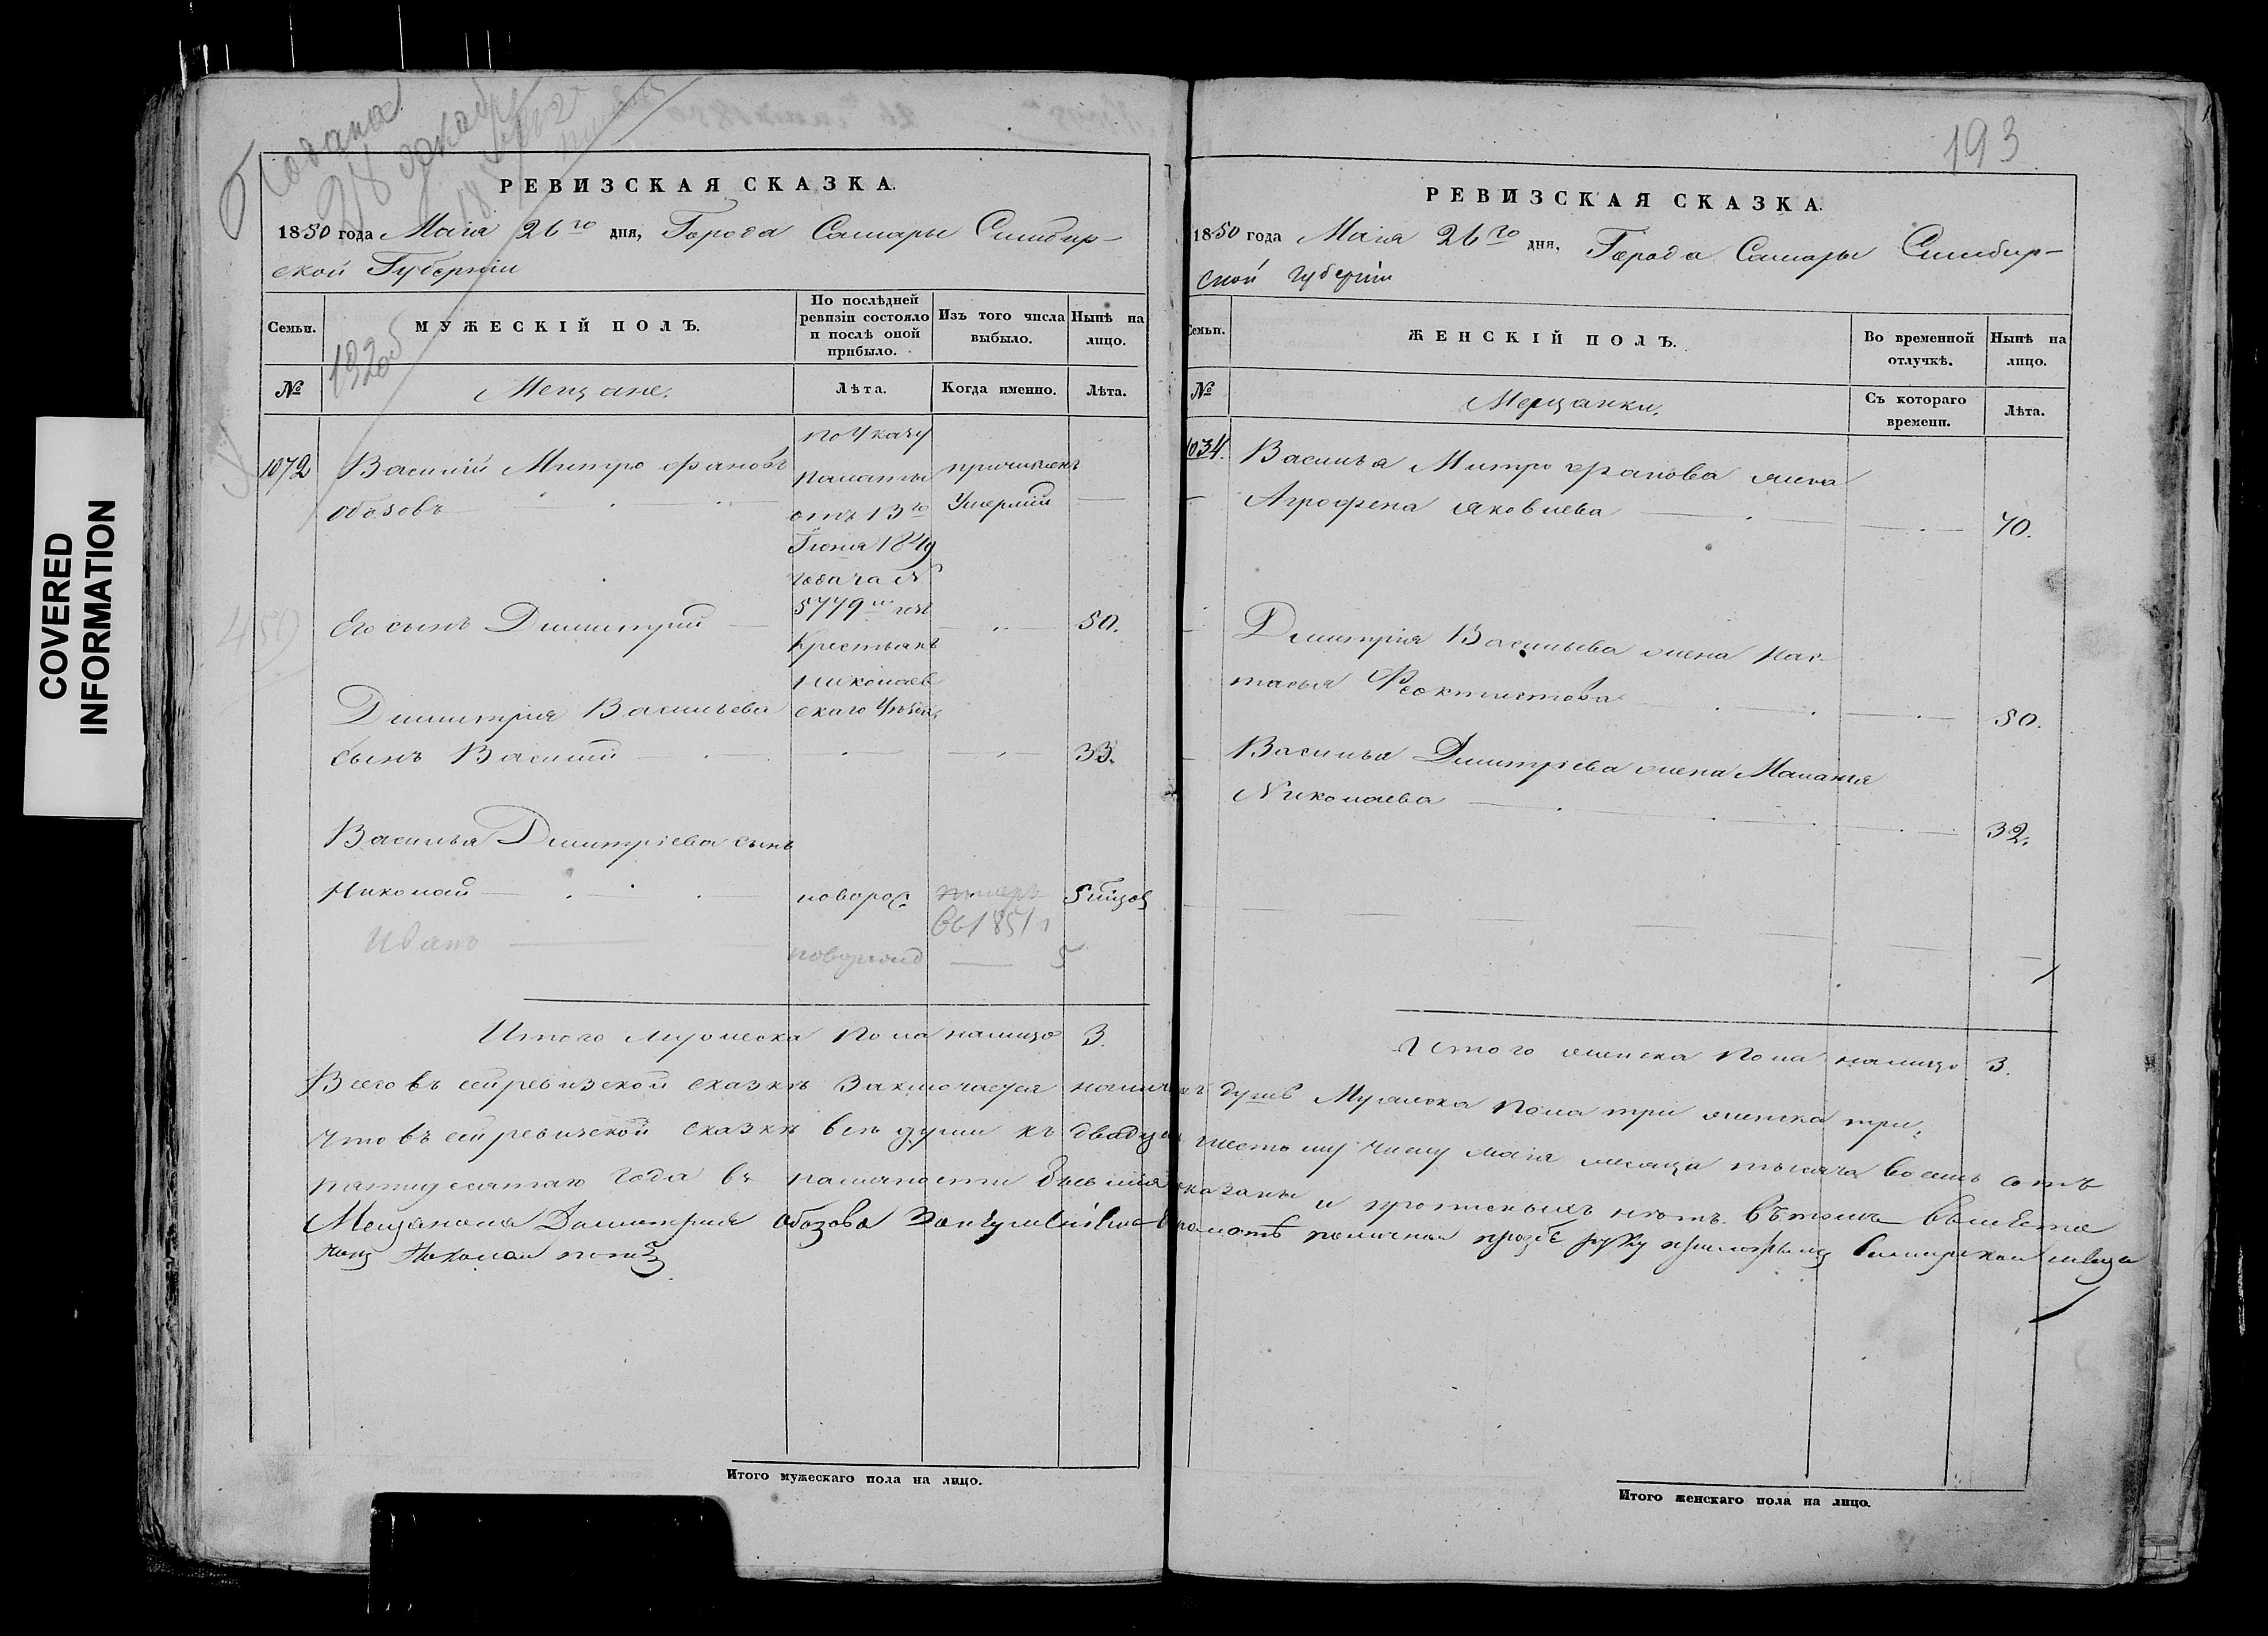 COVERED
INFORMATION
193
РЕВИЗСКАЯ СКАЗКА.
1850 года Маія 26го дня, Города Самары Симбир-
ской Губерніи
Семьи.
МУЖЕСКІЙ ПОЛЪ.
По послѣдней
ревизіи состояло
и послѣ оной
прибыло.
Изъ того числа
выбыло.
Нынѣ на
лицо.
№
Мещане.
Лѣта.
Когда именно.
Лѣта.
1072
Василій Митрофановъ
Обозовъ
по указу
палаты
отъ 13го
Іюня 1849
года за №
5779
Крестьянъ
Николаев
скаго
причисленъ
Умершій
Его сынъ Димитрій
50.
Димитрія Васильева
сынъ Василій
33.
Василья Димитріева сынъ
Николай
новорож.
въ 1851
5
Иванъ
новорожд
5
Итого мужеска пола налицо 3.
РЕВИЗСКАЯ СКАЗКА.
1850 года Маія 26го дня, Города Самары Симбир-
ской губерніи
Семьи.
ЖЕНСКІЙ ПОЛЪ.
Во временной
отлучкѣ.
Нынѣ на
лицо.
№
Мещанки.
Съ котораго
времени.
Лѣта.
Василья Митрофанова жена
Агрофена Яковлева
70.
Дмитрія Васильева жена Нас-
тасья Феоктистова
50.
Василья Димитріева жена Маланья
Николаева
32.
Итого женска пола налицо 3.
Всего въ сей ревизской сказкѣ заключается душъ Мужеска пола три женска три,
что въ сей ревизской сказкѣ всѣ души къ шестому числу маія месяца тысяча восемь сотъ
пятидесятаго года въ наличности показаны и прописныхъ нѣтъ. въ томъ вместо
Мещанина Димитрия Обозова руку приложилъ Самарской
Итого мужескаго пола на лицо.
Итого женскаго пола на лицо.